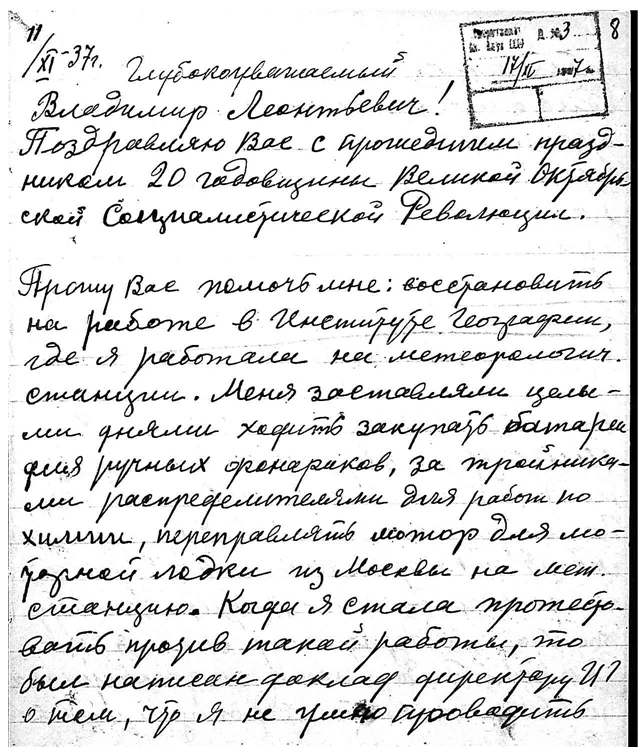 11
/XI-37г.
8
Д. № 3
17/XI 1937 г.
Глубокоуважаемый
Владимир Леонтьевич!
Поздравляю Вас с прошедшим празд-
ником 20 годовщины Великой Октябрь-
ской Социалистической Революции.
Прошу Вас помочь мне: восстановить
на работе в Институте Географии,
где я работала на метеорологич.
станции. Меня заставляли целы-
ми днями ходить закупать батареи
для ручных фонариков, за тройника-
ми распределителями для работ по
химии, переправлять мотор для мо-
торной лодки из Москвы на мет.
станцию. Когда я стала протесто-
вать против такой работы, то
был написан доклад директору ИГ
о том, что я не умею проводить